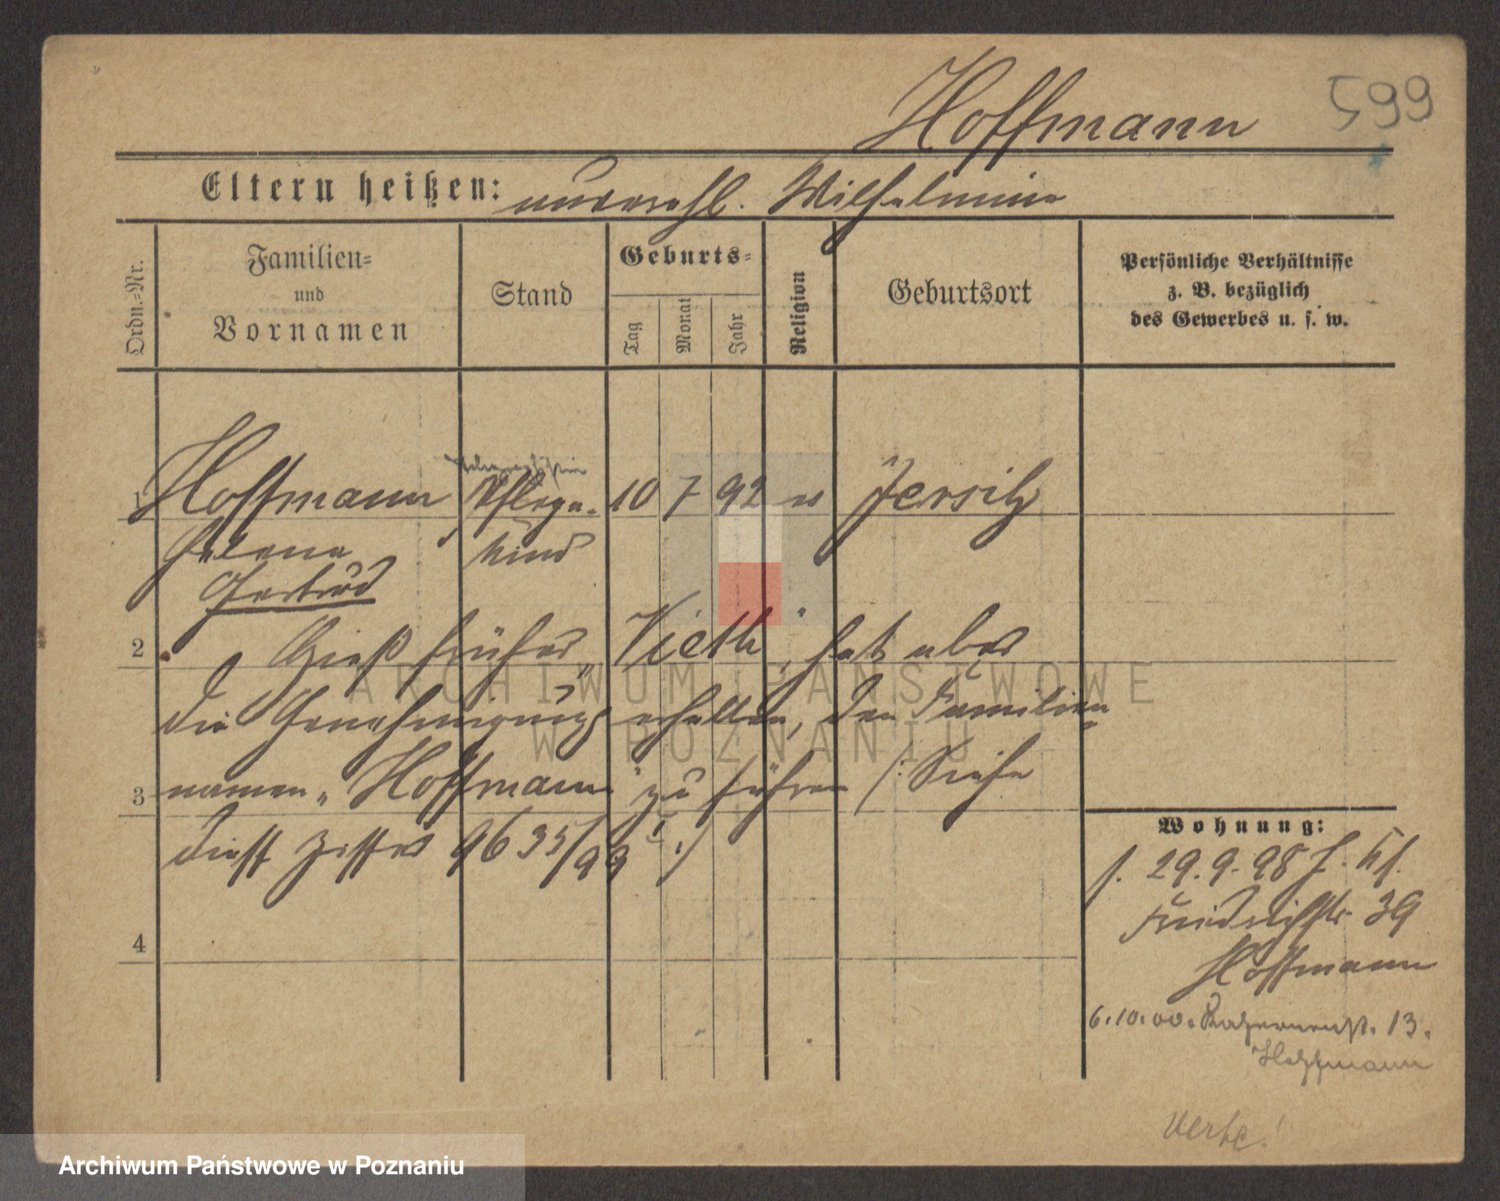 599
Hoffmann
Eltern heißen: unverehl. Wilhelmine
Ordn.-Nr.
Familien-
und
Vornamen
Stand
Geburts-
Tag
Monat
Jahr
Religion
Geburtsort
Persönliche Verhältnisse
z. B. bezüglich
des Gewerbes u. s. w.
1 Hoffmann Pflege- 10 7 92 ev Jersitz
Helene kind
Gertrud
2 Hieß früher „Vieth", hat aber
die Genehmigung erhalten, den Familien-
3 namen „Hoffmann" zu führen /: Siehe
9635/99 :/
4
Wohnung:
29.9.98
Friedrichstr. 39
Hoffmann
6.10.00. Kasernenst. 13.
Hoffmann
verte!
ARCHIWUM PAŃSTWOWE
W POZNANIU
Archiwum Państwowe w Poznaniu